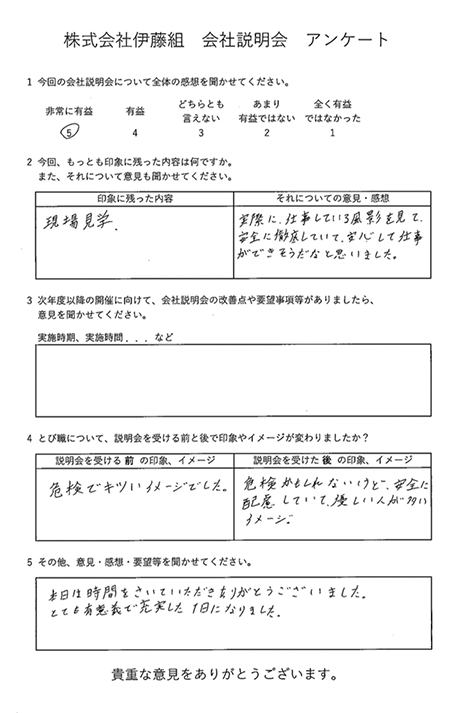 株式会社伊藤組　会社説明会　アンケート
1 今回の会社説明会について全体の感想を聞かせてください。
非常に有益　有益　どちらとも言えない　あまり有益ではない　全く有益ではなかった
5　4　3　2　1
2 今回、もっとも印象に残った内容は何ですか。
また、それについて意見も聞かせてください。
印象に残った内容　それについての意見・感想
現場見学.
実際に、仕事している風影を見て、
安全に徹底していて、安心して仕事
ができそうだなと思いました。
3 次年度以降の開催に向けて、会社説明会の改善点や要望事項等がありましたら、
意見を聞かせてください。
実施時期、実施時間．．．など
4 とび職について、説明会を受ける前と後で印象やイメージが変わりましたか？
説明会を受ける 前 の印象、イメージ　説明会を受けた 後 の印象、イメージ
危検でキツいイメージでした。
危検かもしれないけど、安全に
配慮していて、優しい人が多い
イメージ。
5 その他、意見・感想・要望等を聞かせてください。
本日は時間をさいていただきありがとうございました。
とても有意義で充実した1日になりました。
貴重な意見をありがとうございます。